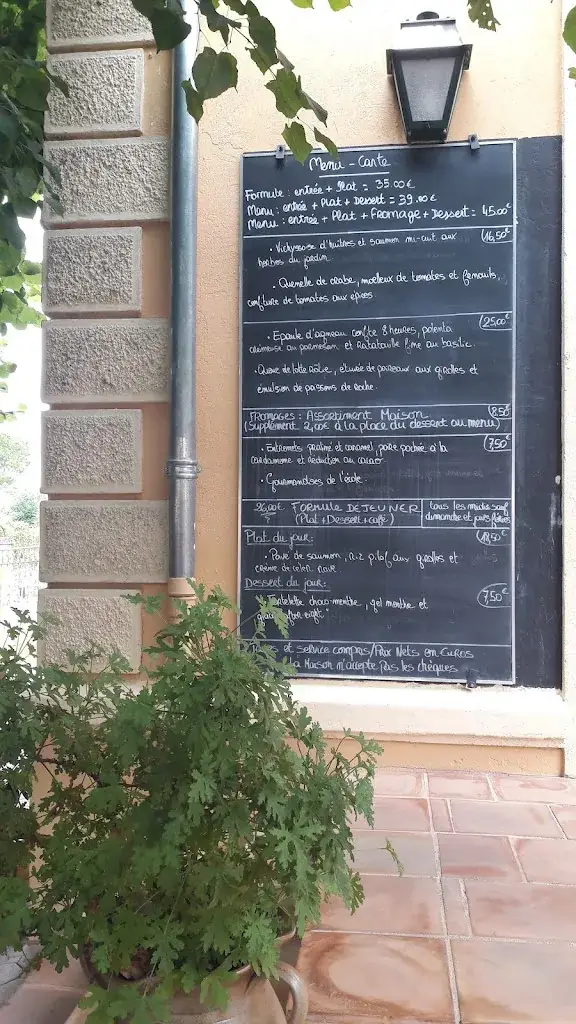 Menu - Carte
Formule : entrée + Plat = 35.00€
Menu : entrée + Plat + Dessert = 39.00€
Menu : entrée + Plat + Fromage + Dessert = 45.00€
• Vichyssoise d'huîtres et saumon mi-cuit aux 16,50€
herbes du jardin.
• Quenelle de crabe, moelleux de tomates et fenouils,
confiture de tomates aux épices
25,00€
• Epaule d'agneau confite 8 heures, polenta
crémeuse au parmesan et Ratatouille fine au basilic.
• Queue de lotte Rôtie, etuvée de poireaux aux girolles et
émulsion de poissons de Roche.
FROMAGES : Assortiment Maison 8,50€
(Supplément 2,00€ à la place du dessert au menu)
• Entremets praliné et caramel, poire pochée à la 7,50€
cardamome et réduction au cacao
• Gourmandises de l'école.
26,00€ FORMULE DEJEUNER tous les midis sauf
(Plat + Dessert + café) dimanche et jours fériés
Plat du jour: 18,50€
• Pavé de saumon, riz pilaf aux girolles et
crème de céleri rave.
Dessert du jour:
• Tartelette choco-menthe, gel menthe et 7,50€
Taxes et service compris/Prix Nets en Euros
La Maison n'accepte pas les chèques